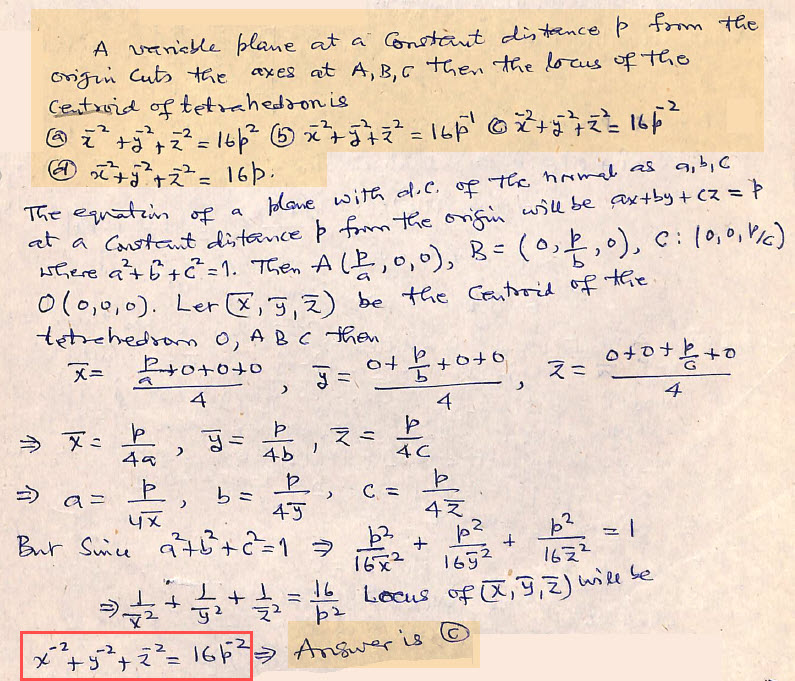 A variable plane at a constant distance p from the
origin cuts the axes at A, B, C then the locus of the
centroid of tetrahedron is
ⓐ x̄⁻² + ȳ⁻² + z̄⁻² = 16p² ⓑ x̄⁻² + ȳ⁻² + z̄⁻² = 16p⁻¹ ⓒ x̄⁻² + ȳ⁻² + z̄⁻² = 16p⁻²
ⓓ x̄⁻² + ȳ⁻² + z̄⁻² = 16p.
The equation of a plane with d.c. of the normal as a, b, c
at a constant distance p from the origin will be ax+by+cz = p
where a²+b²+c²=1. Then A (p/a, 0, 0), B = (0, p/b, 0), C: (0, 0, p/c)
O (0,0,0). Let (x̄, ȳ, z̄) be the centroid of the
tetrahedron O, A B C then
x̄ = (p/a+0+0+0)/4 , ȳ = (0+p/b+0+0)/4 , z̄ = (0+0+p/c+0)/4
⇒ x̄ = p/4a , ȳ = p/4b , z̄ = p/4c
⇒ a = p/4x̄ , b = p/4ȳ , c = p/4z̄
But since a²+b²+c²=1 ⇒ p²/16x̄² + p²/16ȳ² + p²/16z̄² = 1
⇒ 1/x̄² + 1/ȳ² + 1/z̄² = 16/p² Locus of (x̄, ȳ, z̄) will be
x⁻² + y⁻² + z⁻² = 16p⁻² ⇒ Answer is ⓒ